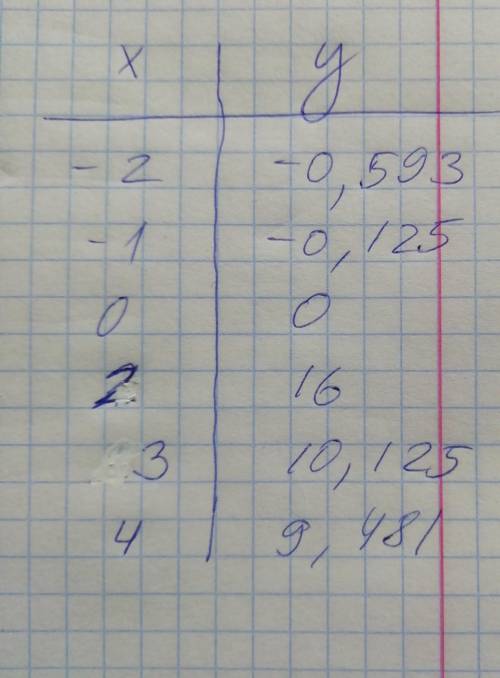 x y
-2 -0,593
-1 -0,125
0 0
2 16
3 10,125
4 9,481